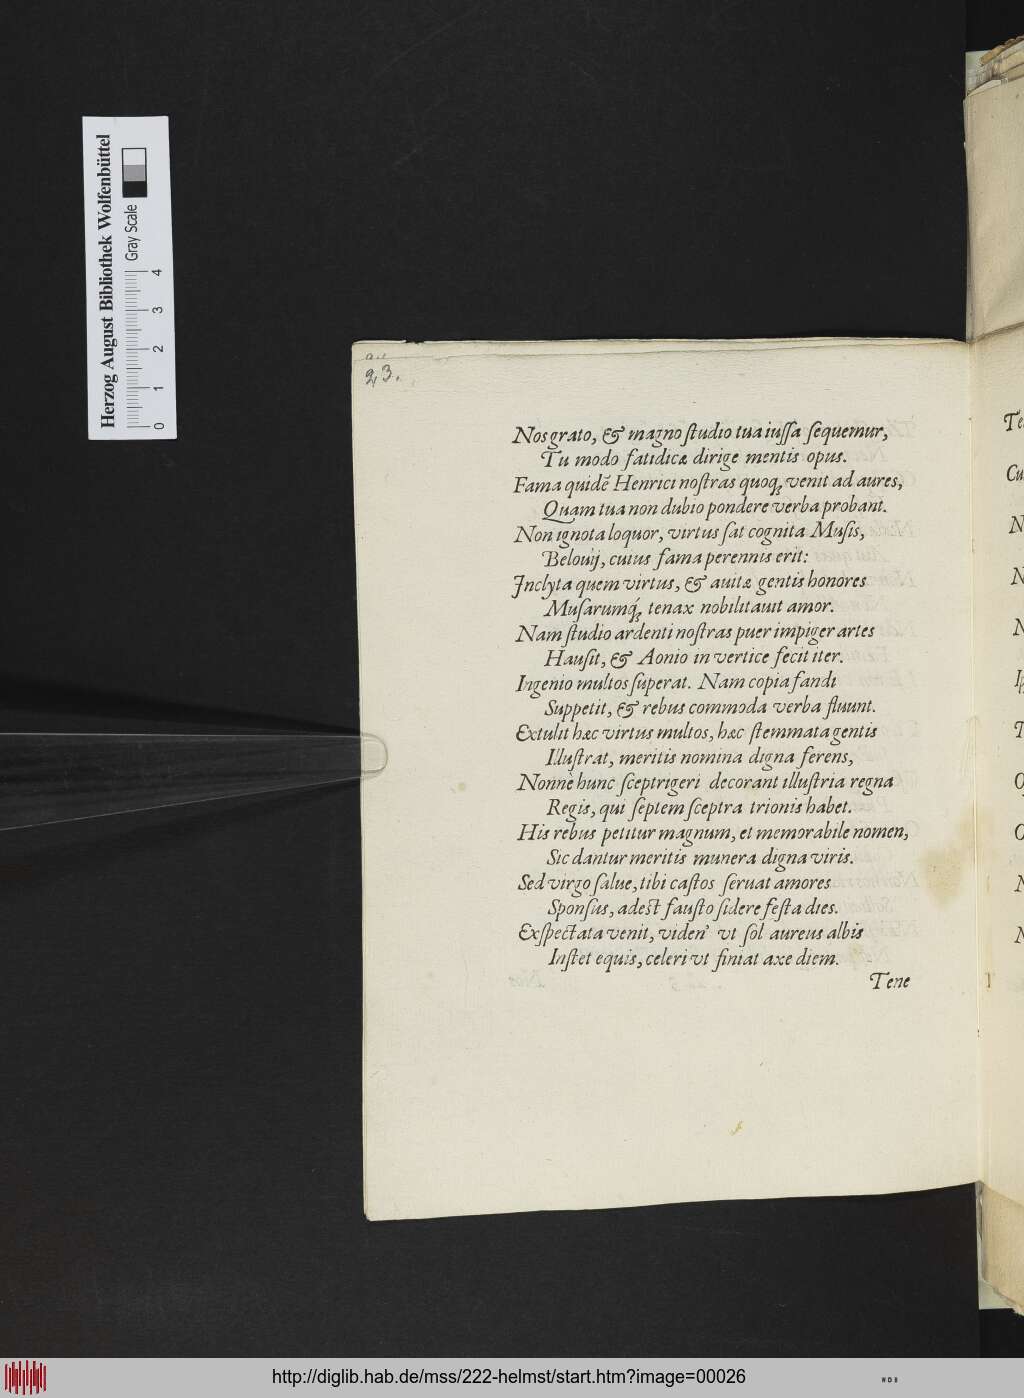 23.
Nos grato, & magno ſtudio tua iuſſa ſequemur,
Tu modo fatidicæ dirige mentis opus.
Fama quidẽ Henrici noſtras quoq; venit ad aures,
Quam tua non dubio pondere verba probant.
Non ignota loquor, virtus ſat cognita Muſis,
Belouij, cuius fama perennis erit:
Inclyta quem virtus, & auitæ gentis honores
Muſarumq́; tenax nobilitauit amor.
Nam ſtudio ardenti noſtras puer impiger artes
Hauſit, & Aonio in vertice fecit iter.
Ingenio multos ſuperat. Nam copia fandi
Suppetit, & rebus commoda verba fluunt.
Extulit hæc virtus multos, hæc ſtemmata gentis
Illuſtrat, meritis nomina digna ferens,
Nonnè hunc ſceptrigeri decorant illuſtria regna
Regis, qui ſeptem ſceptra trionis habet.
His rebus petitur magnum, et memorabile nomen,
Sic dantur meritis munera digna viris.
Sed virgo ſalue, tibi caſtos ſeruat amores
Sponſus, adeſt fauſto ſidere feſta dies.
Exſpectata venit, viden' vt ſol aureus albis
Inſtet equis, celeri vt finiat axe diem.
Tene
Herzog August Bibliothek Wolfenbüttel
Gray Scale
0 1 2 3 4
http://diglib.hab.de/mss/222-helmst/start.htm?image=00026